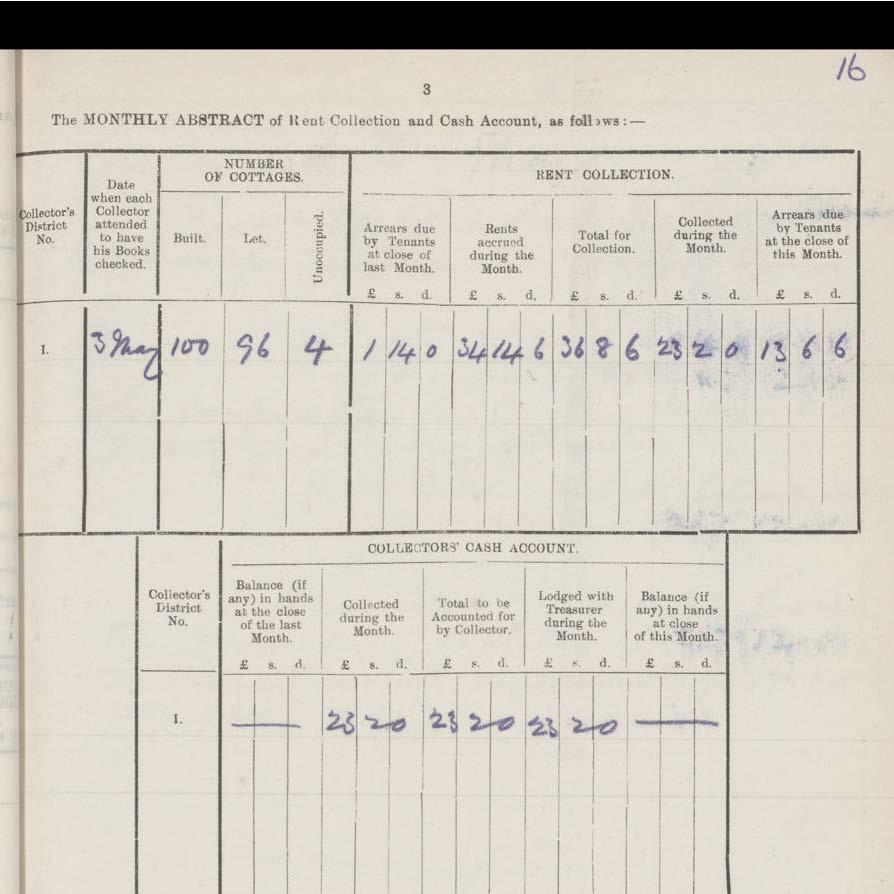 16
3
The MONTHLY ABSTRACT of Rent Collection and Cash Account, as follows:—
Collector's District No.
Date when each Collector attended to have his Books checked.
NUMBER OF COTTAGES.
Built.
Let.
Unoccupied.
RENT COLLECTION.
Arrears due by Tenants at close of last Month.
Rents accrued during the Month.
Total for Collection.
Collected during the Month.
Arrears due by Tenants at the close of this Month.
£ s. d. £ s. d. £ s. d. £ s. d. £ s. d.
I. 3 May 100 96 4 1 14 0 34 14 6 36 8 6 23 2 0 13 6 6
COLLECTORS' CASH ACCOUNT.
Collector's District No.
Balance (if any) in hands at the close of the last Month.
Collected during the Month.
Total to be Accounted for by Collector.
Lodged with Treasurer during the Month.
Balance (if any) in hands at close of this Month.
£ s. d. £ s. d. £ s. d. £ s. d. £ s. d.
I. — 23 2 0 23 2 0 23 2 0 —